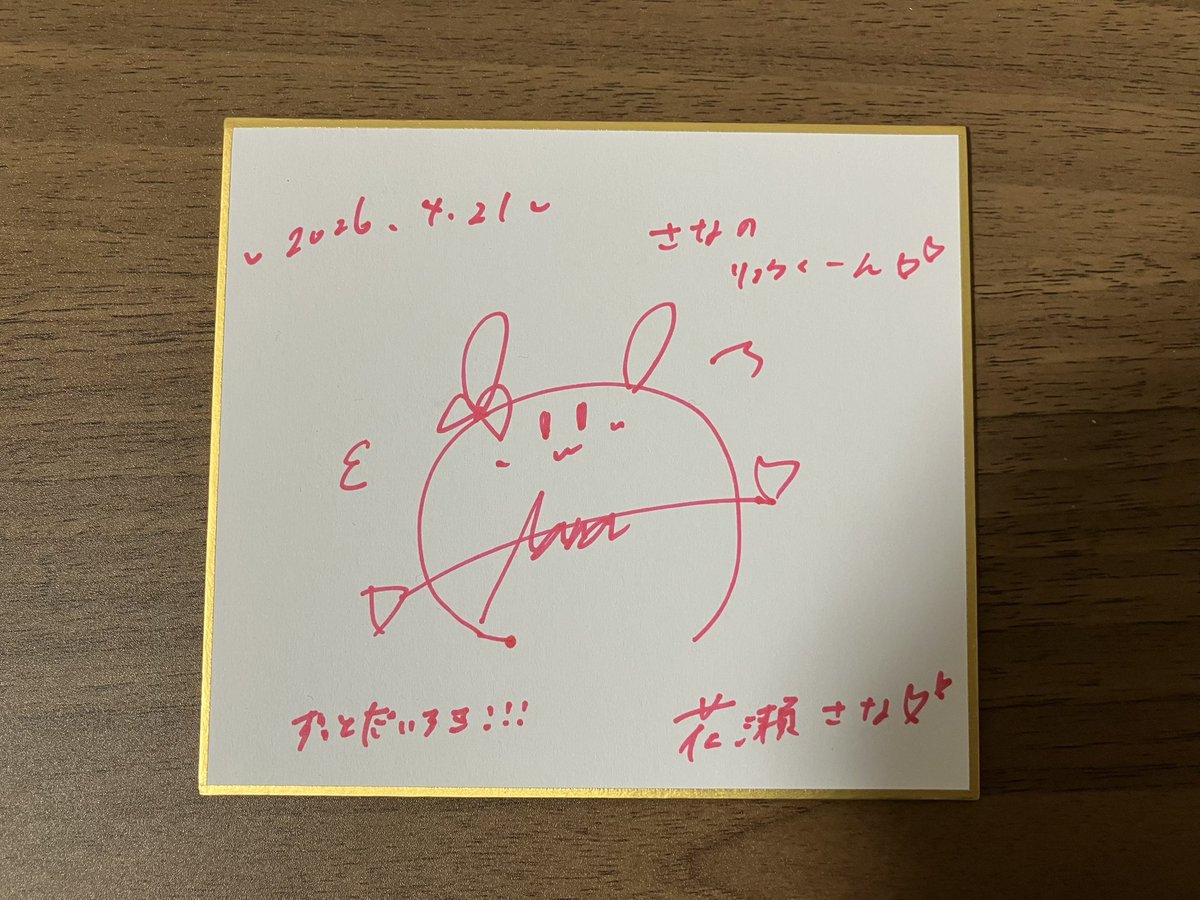 2026.4.21
さなの
りょうくーん♡♡
ずっとだいすき!!!
花瀬さな♡♡